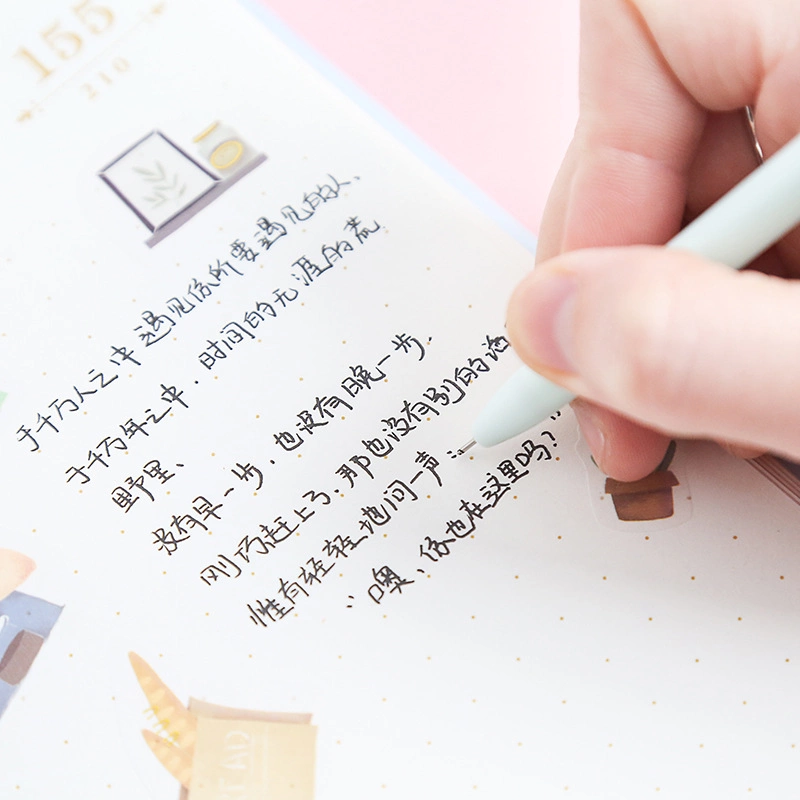 155
210
于千万人之中遇见你所要遇见的人、
于千万年之中，时间的无涯的荒
野里、
没有早一步，也没有晚一步．
刚巧赶上了；那也没有别的
惟有轻轻地问一声：
：噢、你也在这里吗？